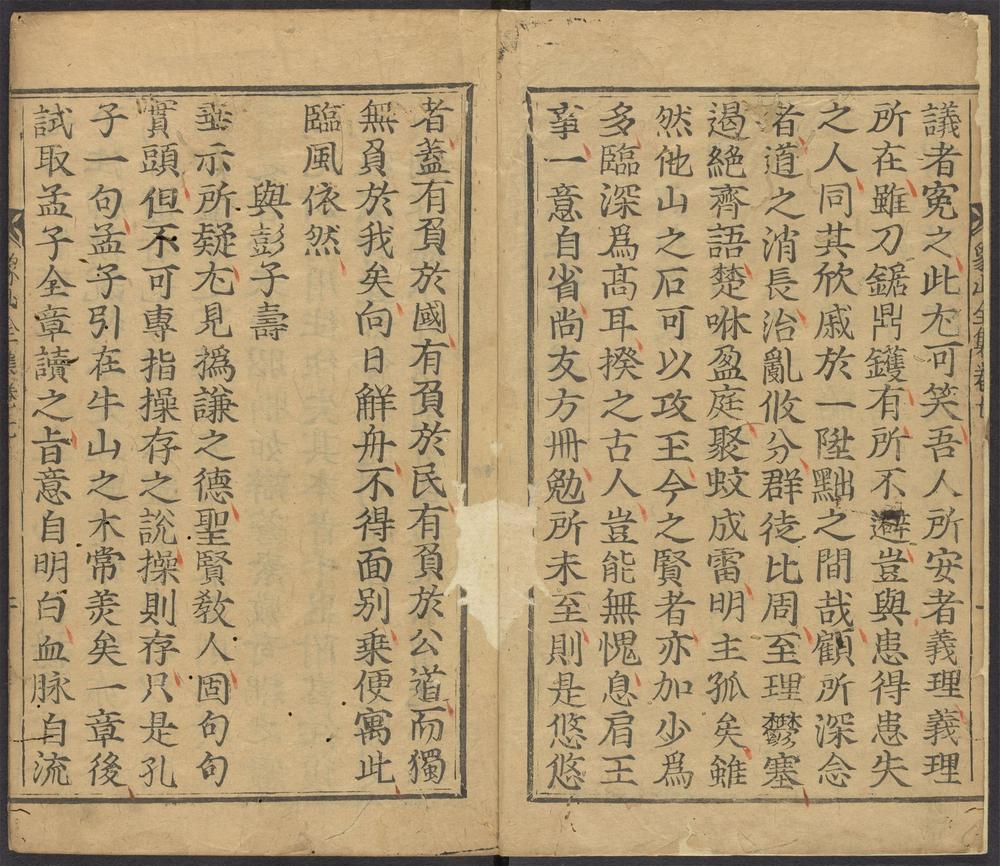 議者冤之此尤可笑吾人所安者義理義理
所在雖刀鋸鼎鑊有所不避豈與患得患失
之人同其欣戚於一陞黜之間哉顧所深念
者道之消長治亂攸分群徒比周至理鬱塞
遏絕齊語楚咻盈庭聚蚊成雷明主孤矣雖
然他山之石可以攻玉今之賢者亦加少爲
多臨深爲髙耳揆之古人豈能無愧息肩王
事一意自省尚友方冊勉所未至則是悠悠
者蓋有負於國有負於民有負於公道而獨
無負於我矣向日解舟不得面別乗便寓此
臨風依然
與彭子壽
垂示所疑尤見撝謙之德聖賢敎人固句句
實頭但不可專指操存之說操則存只是孔
子一句孟子引在牛山之木常羙矣一章後
試取孟子全章讀之旨意自明白血脉自流
象山全集卷